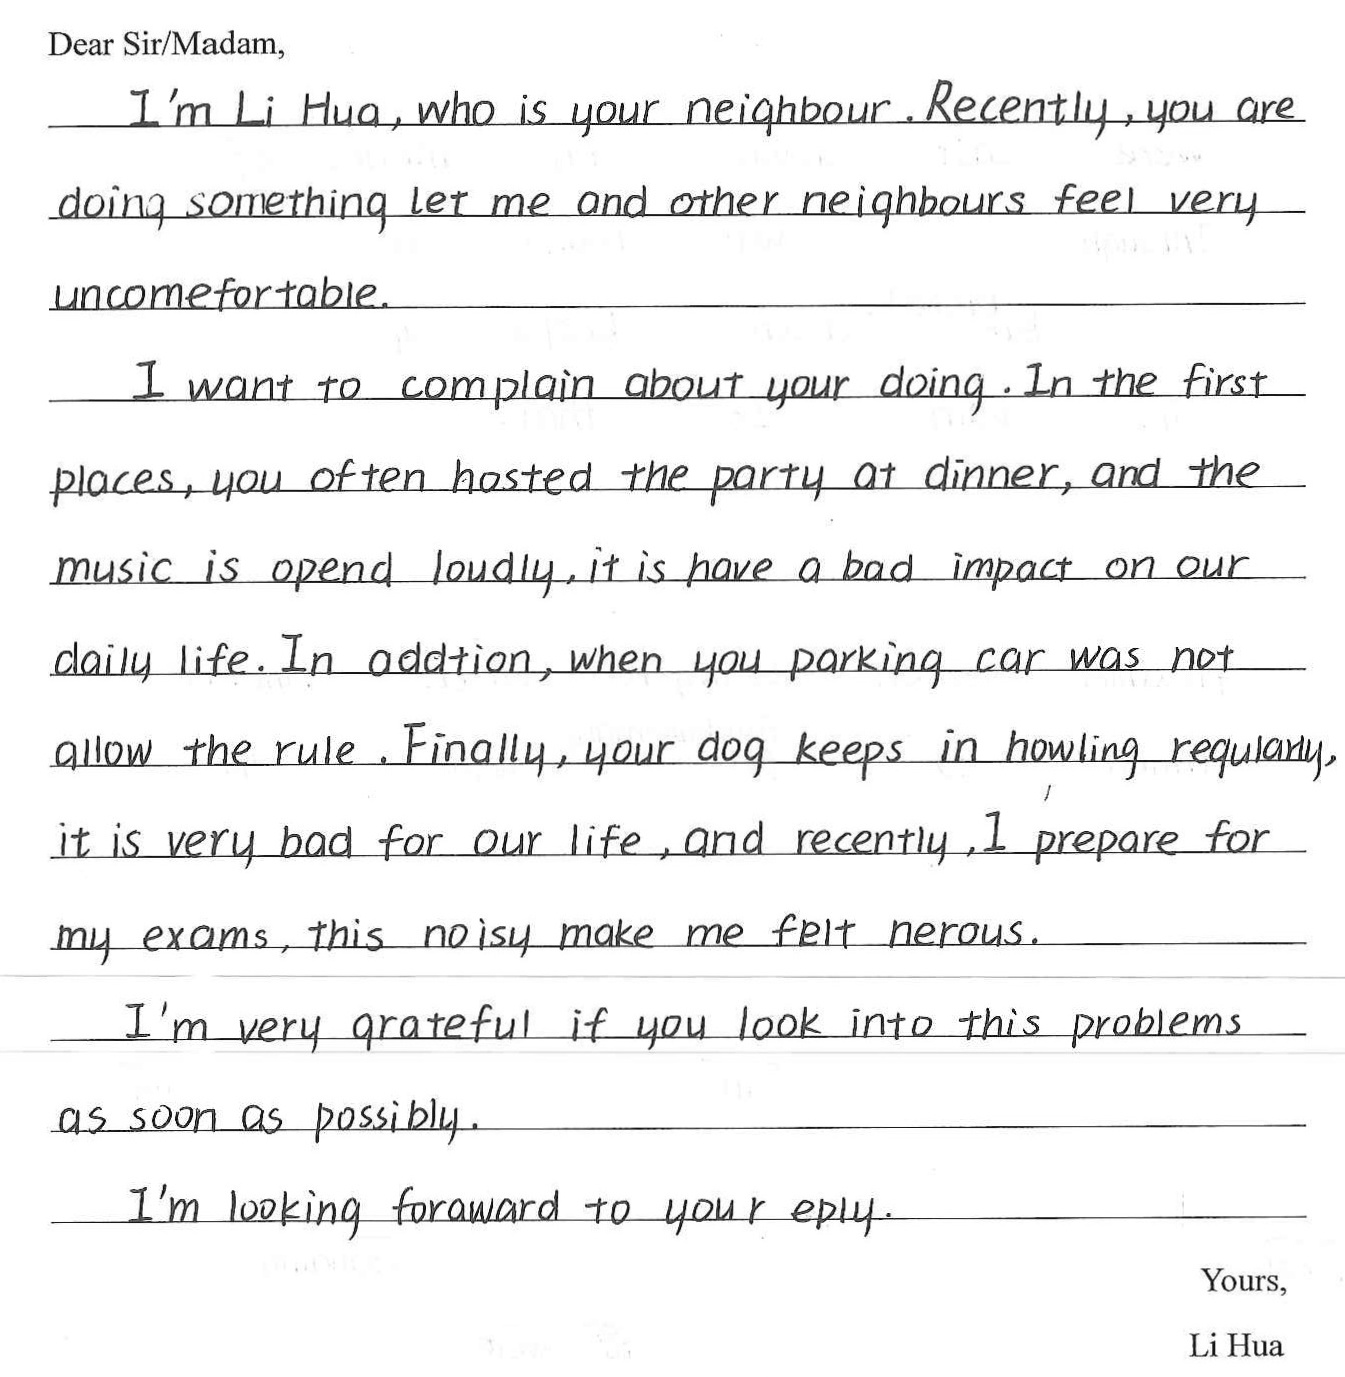 Dear Sir/Madam,
I'm Li Hua, who is your neighbour. Recently, you are
doing something let me and other neighbours feel very
uncomefortable.
I want to complain about your doing. In the first
places, you often hosted the party at dinner, and the
music is opend loudly, it is have a bad impact on our
daily life. In addtion, when you parking car was not
allow the rule. Finally, your dog keeps in howling regularly,
it is very bad for our life, and recently, I prepare for
my exams, this noisy make me felt nerous.
I'm very grateful if you look into this problems
as soon as possibly.
I'm looking foraward to your eply.
Yours,
Li Hua